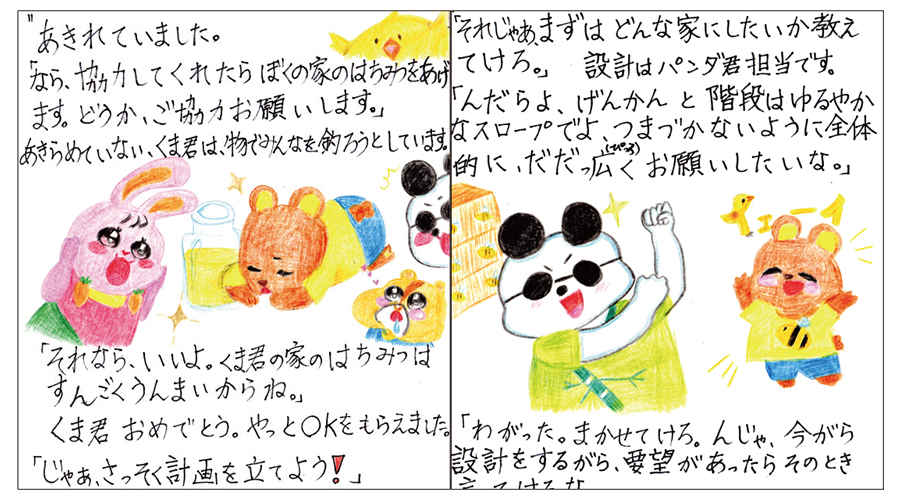 あきれていました。
「なら、協力してくれたらぼくの家のはちみつをあげ
ます。どうか、ご協力お願いします。」
あきらめていない、くま君は、物でみんなを釣ろうとしています。
「それなら、いいよ。くま君の家のはちみつは
すんごくうんまいからね。」
くま君 おめでとう。やっとOKをもらえました。
「じゃあ、さっそく計画を立てよう!」
「それじゃあ、まずは どんな家にしたいか教え
てけろ。」 設計はパンダ君担当です。
「んだらよ、げんかんと階段はゆるやか
なスロープでよ、つまづかないように全体
的に、だだっ広(ぴろ)く お願いしたいな。」
イェーイ
「わがった。まかせてけろ。んじゃ、今がら
設計をするがら、要望があったらそのとき
言ってけろな